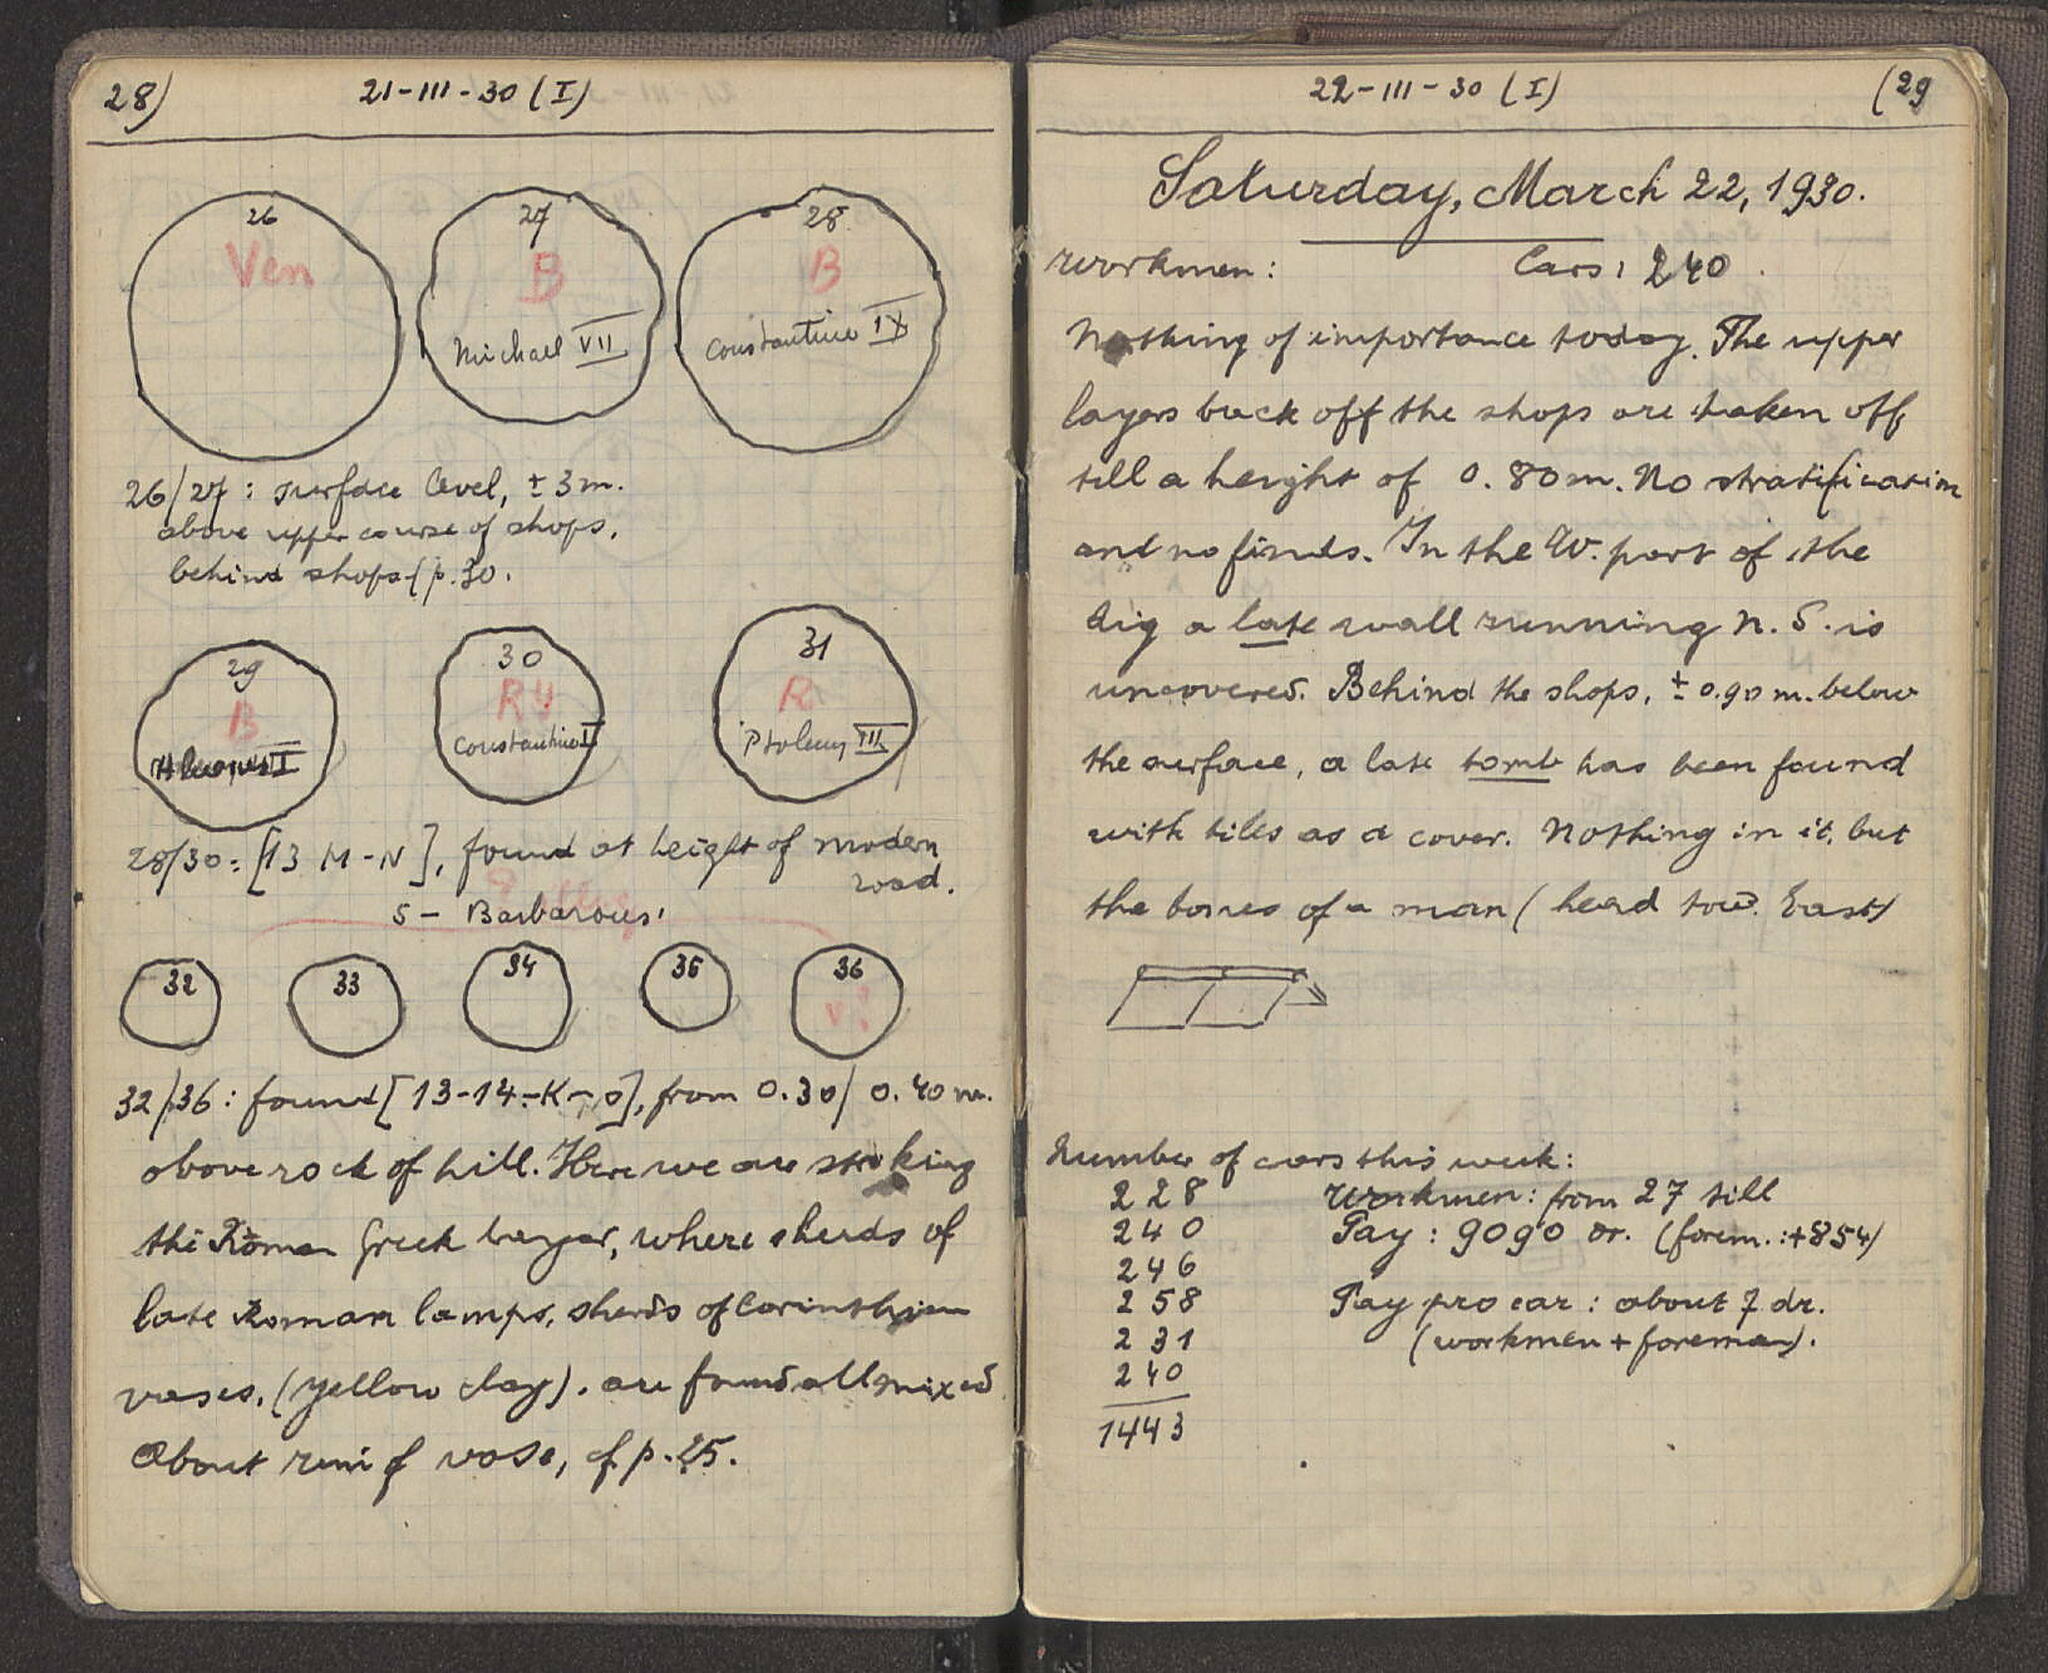 28)
21-III-30 (I)
26
Ven
27
B
Michael VII
28
B
Constantine IX
26/27: surface level, ± 3 m.
above upper course of shops,
behind shops (p. 30.
29
B
I
30
R4
Constantine I
31
R
Ptolemy III
28/30: [13 M-N], found at height of modern
road.
5 - Barbarous
32
33
34
35
36
v?
32/36: found [13-14-K-O], from 0.30/0.40 m.
above rock of hill. Here we are striking
the Roman Greek layer, where sherds of
late Roman lamps, sherds of Corinthian
vases, (yellow clay). are found all mixed
About rim of vase, cf p. 25.
22-III-30 (I)
(29
Saturday, March 22, 1930.
Workmen: Cars: 240.
Nothing of importance today. The upper
layers back off the shops are taken off
till a height of 0.80 m. No stratification
and no finds. In the W. part of the
dig a late wall running N. S. is
uncovered. Behind the shops, ± 0.90 m. below
the surface, a late tomb has been found
with tiles as a cover. Nothing in it, but
the bones of a man (head tow. East)
Number of cars this week:
228 Workmen: from 27 till
240 Pay: 9090 dr. (forem.: +854)
246
258 Pay pro car: about 7 dr.
231 (workmen + foreman).
240
1443